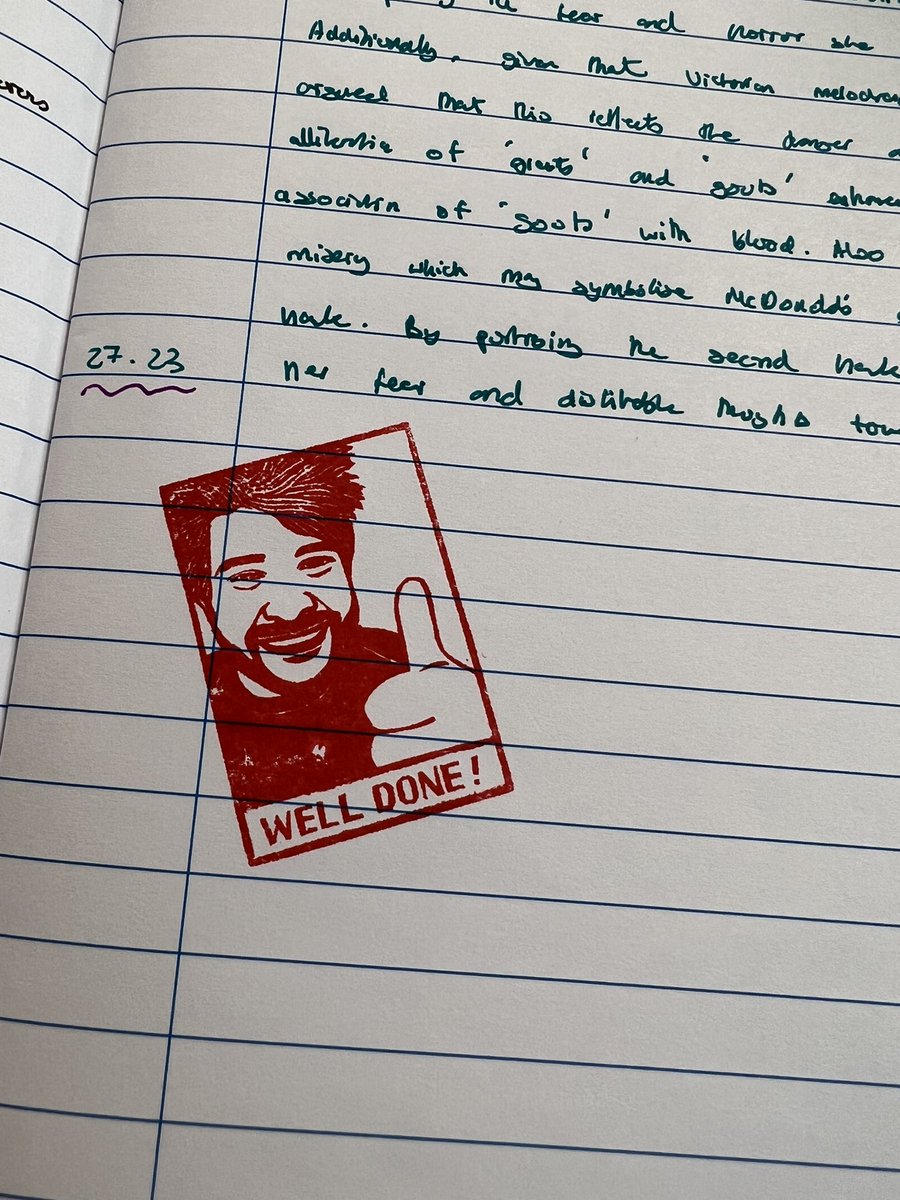 fear and horror she
Additionally, given that Victorian melodra
argued that this reflects the danger a
alliteration of 'giants' and 'gouts' enhance
association of 'gouts' with blood. Also
misery which may symbolise McDonald's
hate. By portraying the second
27.23
her fear and dislikable thoughts tow
WELL DONE!